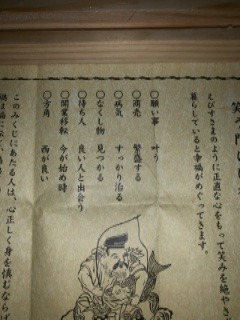 えびすさまのように正直な心をもって笑みを絶やさず
暮らしていると幸福がめぐってきます。
○願い事 叶う
○商売 繁盛する
○病気 すっかり治る
○なくし物 見つかる
○待ち人 良い人と出会う
○開業移転 今が始め時
○方角 西が良い
このみくじにあたる人は、心正しく身を慎むならば